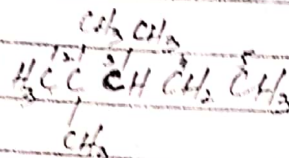 CH₃ CH₃
H₃C C CH CH₂ CH₃
CH₃